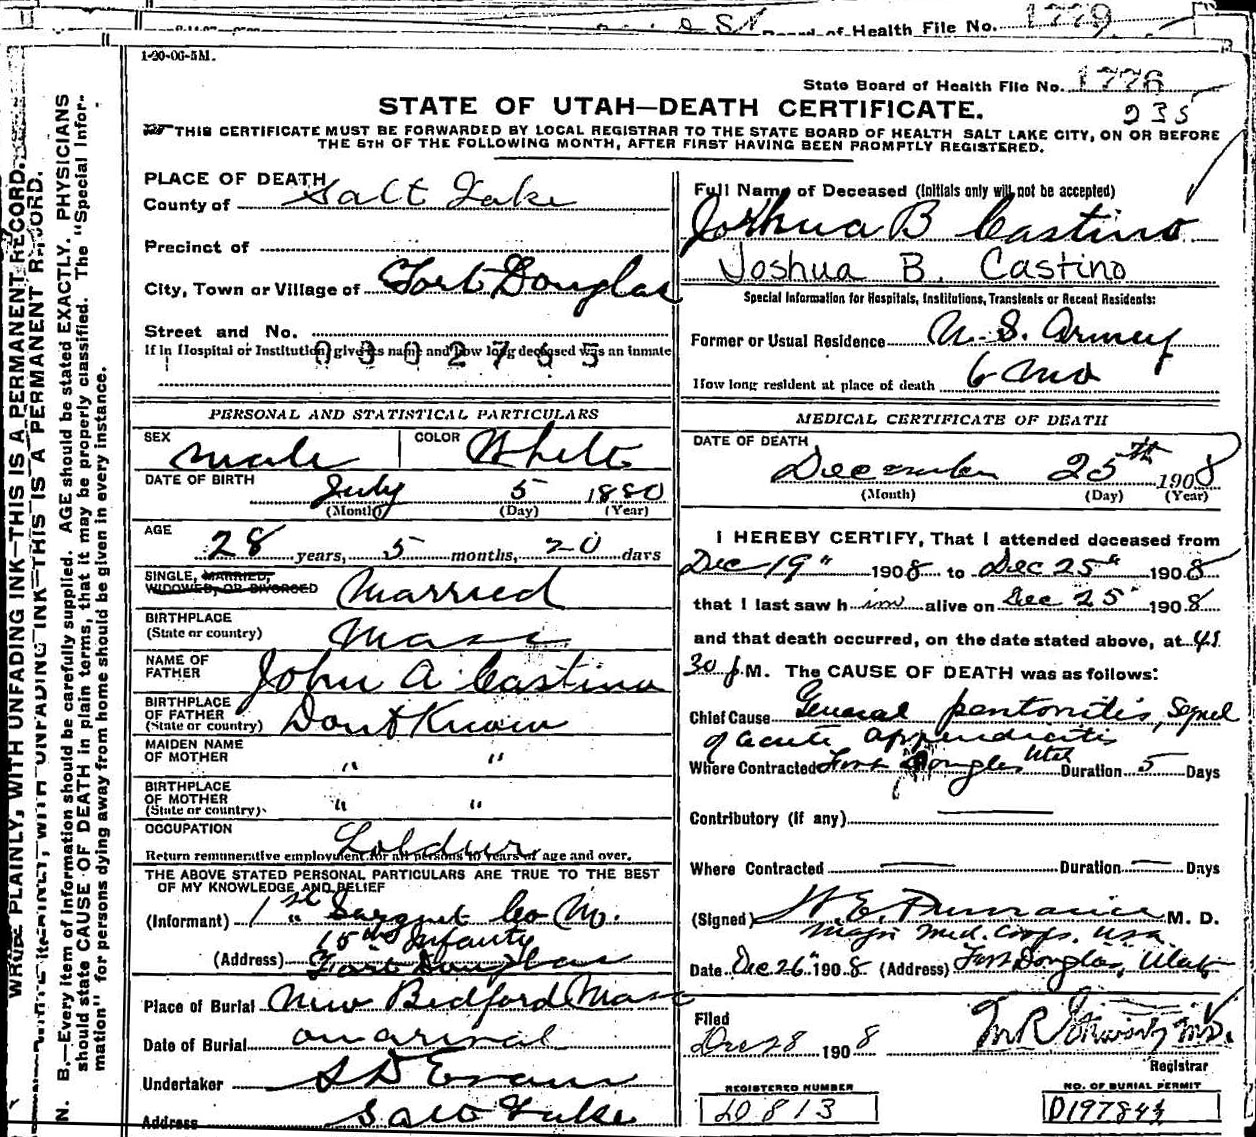 Board of Health File No. 1779
1-20-06-5M.
State Board of Health File No. 1776
235
STATE OF UTAH—DEATH CERTIFICATE.
THIS CERTIFICATE MUST BE FORWARDED BY LOCAL REGISTRAR TO THE STATE BOARD OF HEALTH SALT LAKE CITY, ON OR BEFORE
THE 5TH OF THE FOLLOWING MONTH, AFTER FIRST HAVING BEEN PROMPTLY REGISTERED.
WRITE PLAINLY, WITH UNFADING INK—THIS IS A PERMANENT RECORD.
N. B.—Every item of information should be carefully supplied. AGE should be stated EXACTLY. PHYSICIANS
should state CAUSE OF DEATH in plain terms, that it may be properly classified. The "Special Infor-
mation" for persons dying away from home should be given in every instance.
PLACE OF DEATH
County of Salt Lake
Precinct of
City, Town or Village of Fort Douglas
Street and No.
If in Hospital or Institution, give its name and how long deceased was an inmate
0302765
PERSONAL AND STATISTICAL PARTICULARS
SEX Male COLOR White
DATE OF BIRTH July 5 1880
(Month) (Day) (Year)
AGE 28 years, 5 months, 20 days
SINGLE, MARRIED,
WIDOWED, OR DIVORCED Married
BIRTHPLACE
(State or country) Mass
NAME OF
FATHER John A Castino
BIRTHPLACE
OF FATHER
(State or country) Dont Know
MAIDEN NAME
OF MOTHER " "
BIRTHPLACE
OF MOTHER
(State or country) " "
OCCUPATION Soldier
Return remunerative employment for all persons 10 years of age and over.
THE ABOVE STATED PERSONAL PARTICULARS ARE TRUE TO THE BEST
OF MY KNOWLEDGE AND BELIEF
(Informant) 1st Sargent Co M.
15th Infanty
(Address) Fort Douglas
Place of Burial New Bedford Mass
Date of Burial on arival
Undertaker S D Evans
Address Salt Lake
Full Name of Deceased (Initials only will not be accepted)
Joshua B Castino
Joshua B. Castino
Special Information for Hospitals, Institutions, Transients or Recent Residents:
Former or Usual Residence U. S. Army
How long resident at place of death 6 mo
MEDICAL CERTIFICATE OF DEATH
DATE OF DEATH
December 25th 1908
(Month) (Day) (Year)
I HEREBY CERTIFY, That I attended deceased from
Dec 19" 1908 to Dec 25" 1908
that I last saw him alive on Dec 25" 1908
and that death occurred, on the date stated above, at
30 p.M. The CAUSE OF DEATH was as follows:
Chief Cause General peritonitis, Sequel
of acute appendicitis
Where Contracted Fort Douglas Utah Duration 5 Days
Contributory (if any)
Where Contracted Duration Days
(Signed) M. D.
Major Med. Corps. USA
Date Dec 26" 1908 (Address) Fort Douglas, Utah
Filed
Dec 28 1908
Registrar
REGISTERED NUMBER
NO. OF BURIAL PERMIT